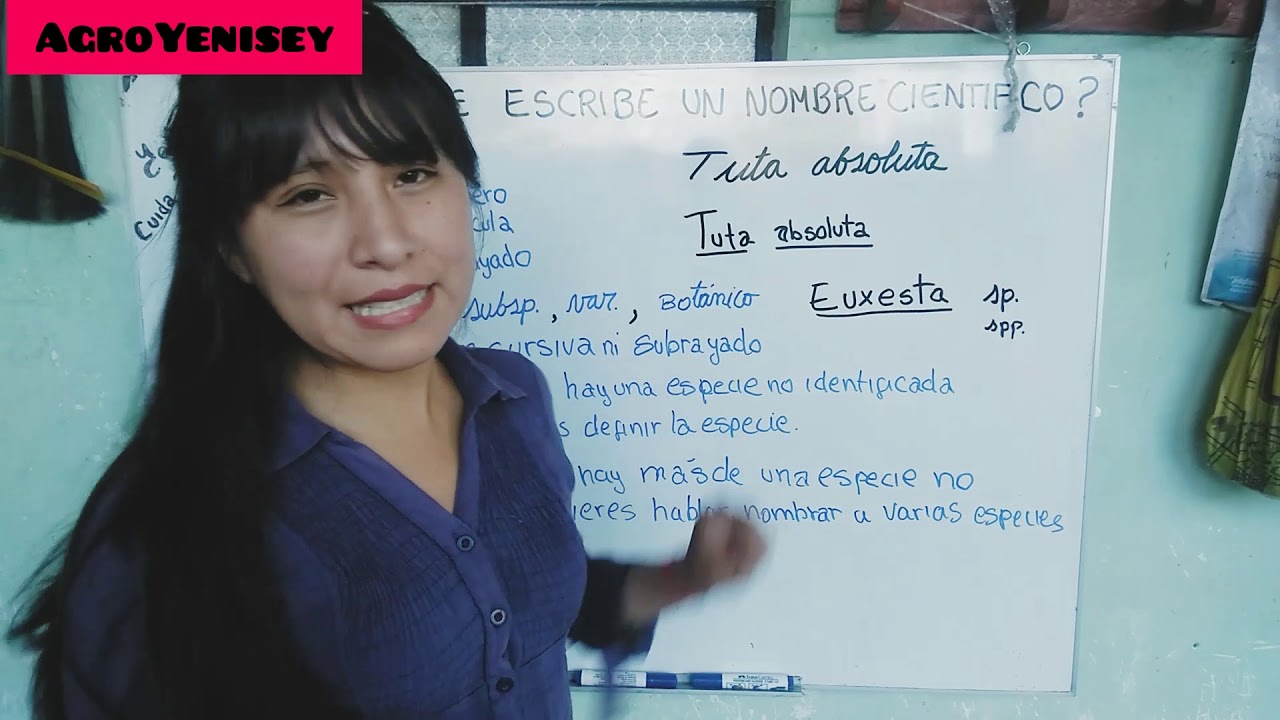 AGROYENISEY
E ESCRIBE UN NOMBRE CIENTIFICO?
Tuta absoluta
ero
cula
Tuta absoluta
yado
Cuida
subsp., var., BOTÁNICO
Euxesta sp.
spp.
cursiva ni subrayado
hay una especie no identificada
s definir la especie.
hay más de una especie no
ieres hablar nombrar a varias especies